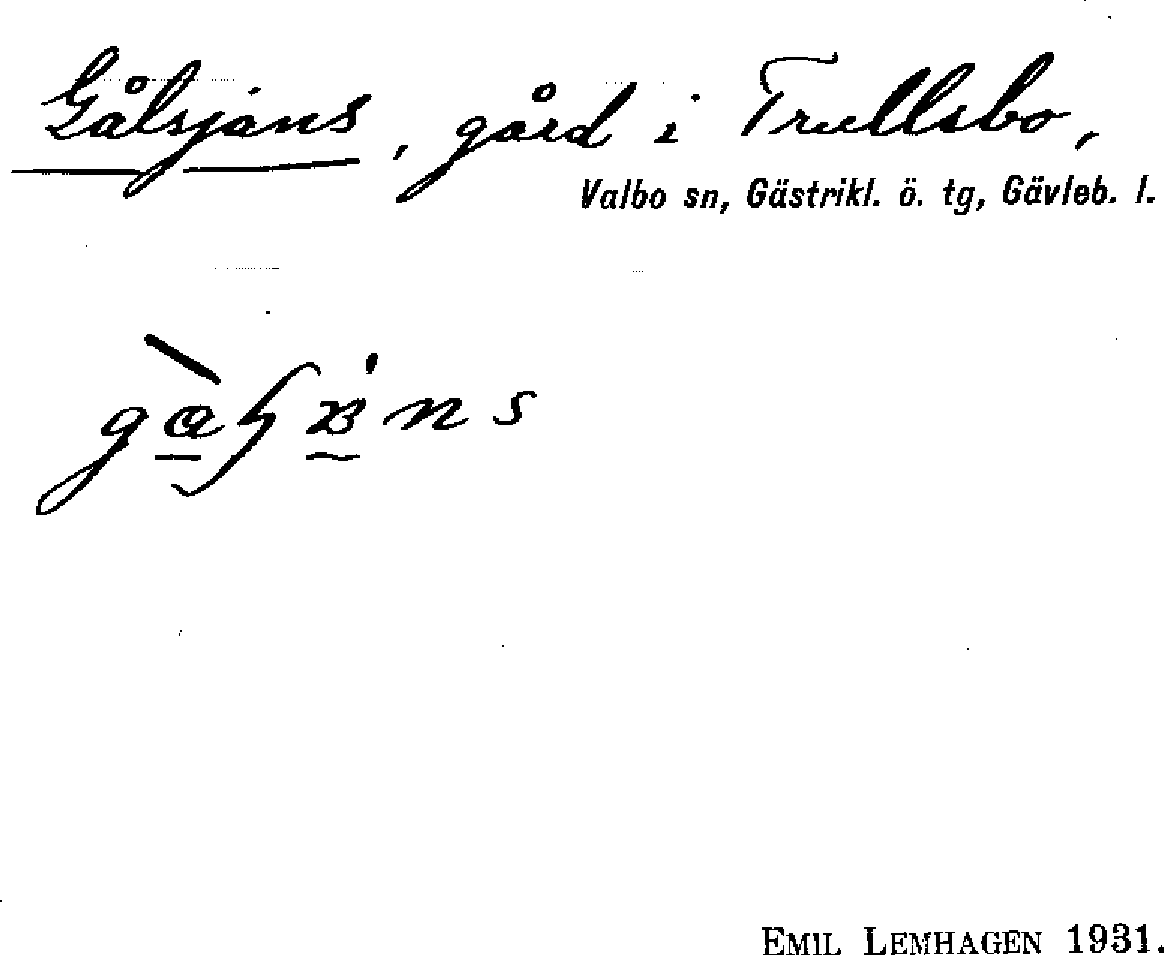 Gålsjäns, gård i Trullsbo,
Valbo sn, Gästrikl. ö. tg, Gävleb. l.
EMIL LEMHAGEN 1931.